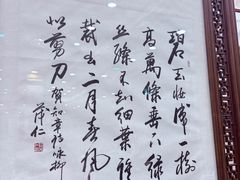 碧玉妆成一樹
高萬條垂下绿
丝絛不知细葉谁
裁出二月春风
似剪刀 贺知章诗咏柳
茂仁